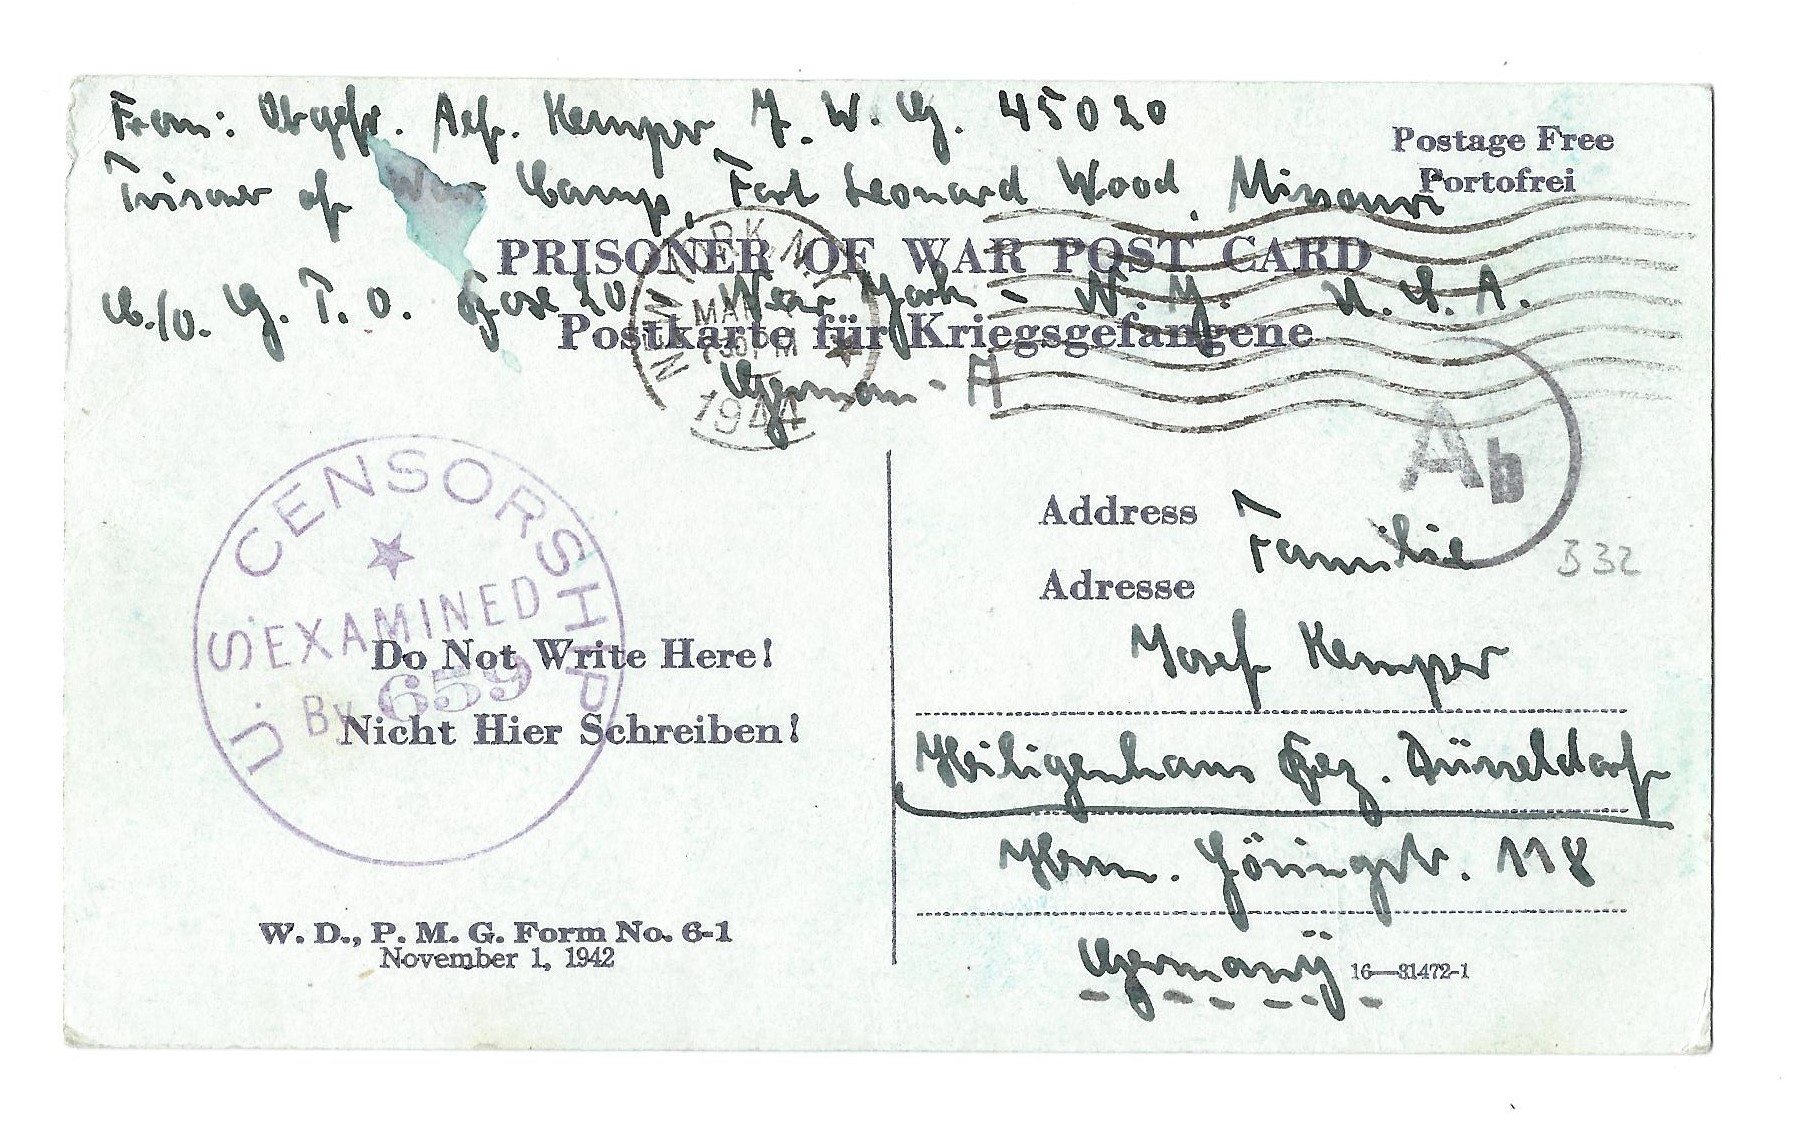 From: Obgefr. Kemper J. W. G. 45020
Postage Free
Prisoner of War Camp, Fort Leonard Wood, Missouri
Portofrei
PRISONER OF WAR POST CARD
C./O. G. P. O. Box 20 New York - N. Y. U. S. A.
Postkarte für Kriegsgefangene
German - A
NEW YORK, N.Y.
MAR
730 PM
1944
Ab
Address
Adresse
Familie
B 32
Josef Kemper
Heiligenhaus Bez. Düsseldorf
Herm. Göringstr. 118
Germanÿ
16—31472-1
U. S. CENSORSHIP
EXAMINED
By 659
Do Not Write Here!
Nicht Hier Schreiben!
W. D., P. M. G. Form No. 6-1
November 1, 1942